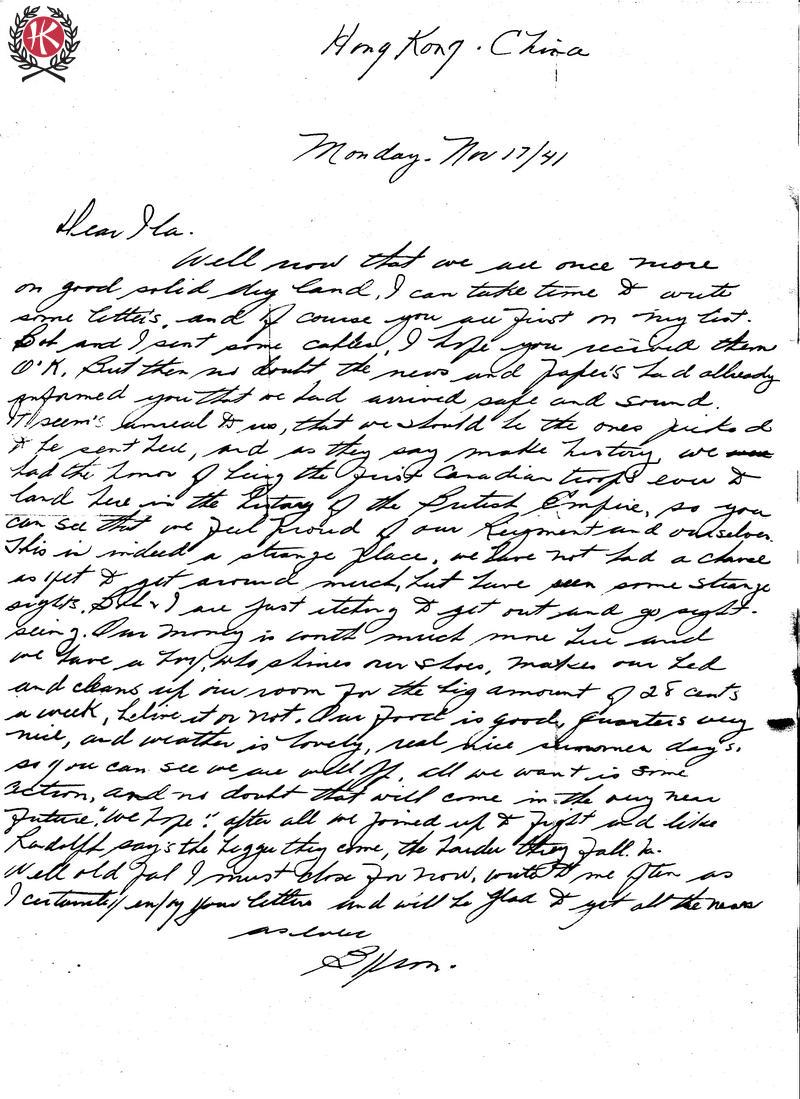 HK
Hong Kong. China
Monday. Nov 17/41
Dear Ila.
Well now that we are once more
on good solid dry land, I can take time to write
some letter's, and of course you are first on my list.
Bob and I sent some cables, I hope you recieved them
O'K. But then no doubt the news and paper's had allready
informed you that we had arrived safe and sound.
It seem's unreal to us, that we should be the ones picked
to be sent here, and as they say make history, we
had the honor of being the first Canadian troops ever to
land here in the history of the British Empire, so you
can see that we feel proud of our Regiment and ourselves.
This is indeed a strange place, we have not had a chance
as yet to get around much, but have seen some strange
sights. Bob & I are just itching to get out and go sight-
seeing. Our money is worth much more here and
we have a boy, who shines our shoes, makes our bed
and cleans up our room for the big amount of 28 cents
a week, belive it or not. Our food is good, quarters very
nice, and weather is lovely, real nice summer day's.
so you can see we are well off, all we want is some
action, and no doubt that will come in the very near
future, "We hope". after all we joined up to fight and like
Rudolph say's the bigger they come, the harder they fall. ha.
Well old pal I must close for now, write to me often as
I certainly enjoy your letters and will be glad to get all the news
as ever
Byron.